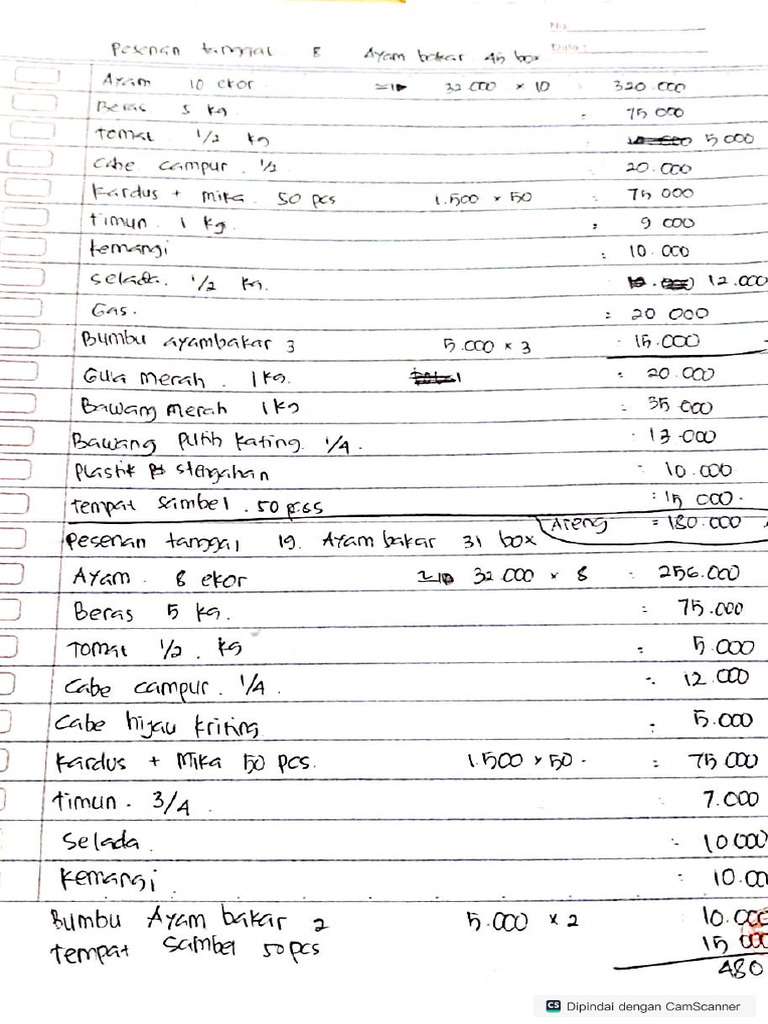 No.
Date :
Pesenan tanggal 8 Ayam bakar 45 box
Ayam 10 ekor 32.000 × 10 320.000
Beras 5 kg : 75 000
Tomat 1/2 kg 5 000
Cabe campur. 1/2 20.000
Kardus + mika 50 pcs 1.500 × 50 : 75 000
timun. 1 kg. : 9 000
kemangi : 10.000
selada. 1/2 kg. 12.000
Gas. : 20 000
Bumbu ayambakar 3 5.000 × 3 : 15.000
Gula merah. 1 kg. : 20.000
Bawang merah 1 kg : 35 000
Bawang putih kating. 1/4. : 13.000
Plastik stengahan : 10.000
tempat sambel. 50 pcs : 15 000.
Areng = 180.000
Pesenan tanggal 19. Ayam bakar 31 box
Ayam. 8 ekor 32.000 × 8 : 256.000
Beras 5 kg. : 75.000
Tomat 1/2. kg : 5.000
Cabe campur. 1/4. : 12.000
Cabe hijau kriting : 5.000
Kardus + Mika 50 pcs. 1.500 × 50. : 75 000
timun. 3/4. : 7.000
Selada. : 10 000
Kemangi. : 10.00
Bumbu Ayam bakar 2 5.000 × 2 : 10.000
tempat sambel 50 pcs 15 000
480
CS Dipindai dengan CamScanner